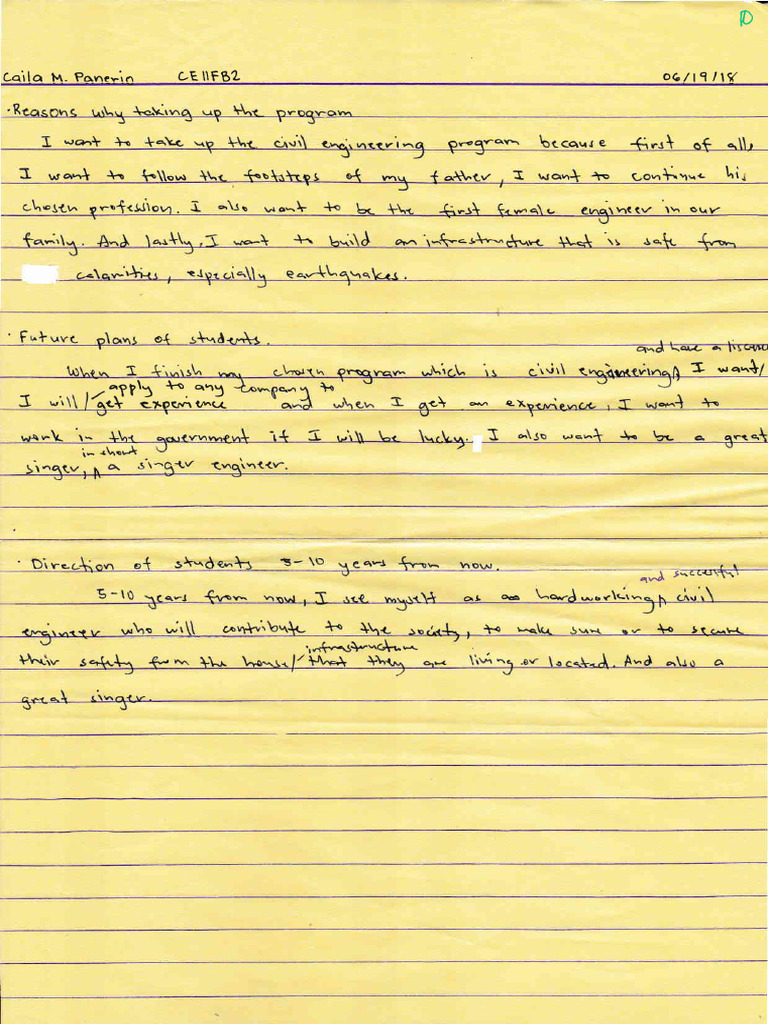 10
Caila M. Panerin CE11FB2 06/19/18
· Reasons why taking up the program
I want to take up the civil engineering program because first of all,
I want to follow the footsteps of my father, I want to continue his
chosen profession. I also want to be the first female engineer in our
family. And lastly, I want to build an infrastructure that is safe from
calamities, especially earthquakes.
· Future plans of students.
and have a
When I finish my chosen program which is civil engineering, I want/
apply to any company to
I will/get experience and when I get an experience, I want to
work in the government if I will be lucky. I also want to be a great
in short
singer, a singer engineer.
· Direction of students 5-10 years from now.
and successful
5-10 years from now, I see myself as hardworking civil
engineer who will contribute to the society, to make sure or to secure
infrastructure
their safety from the house/that they are living or located. And also a
great singer.